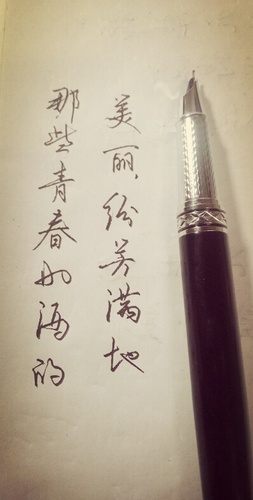 那些青春如酒的
美丽,纷芳满地